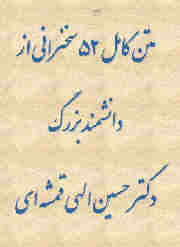 متن کامل ۵۲ سخنرانی از
دانشمند بزرگ
دکتر حسین الهی قمشه ای